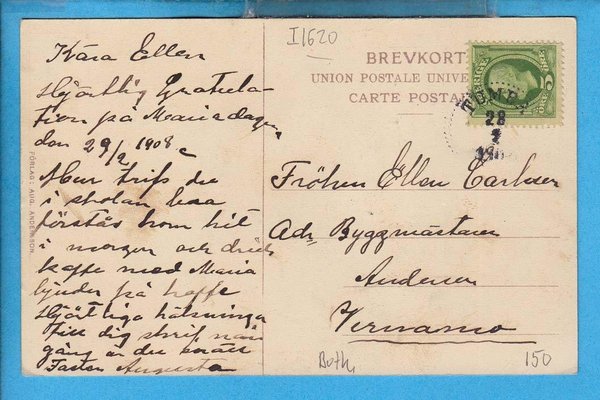 I1620
Kära Ellen
Hjärtlig Gratula-
tion på Mariadagen
den 29/2 1908
Hur trifs du
i skolan
förstås kom hit
i morgon och drick
kaffe med Maria
bjuder på kaffe
Hjärtliga hälsningar
till dig skrif
gång är du
Faster Augusta
FÖRLAG: AUG. ANDERSSON.
BREVKORT
UNION POSTALE UNIVE
CARTE POSTA
28
2
Fröken Ellen Carlsson
Adr Byggmästaren
Andersen
Vernamo
150